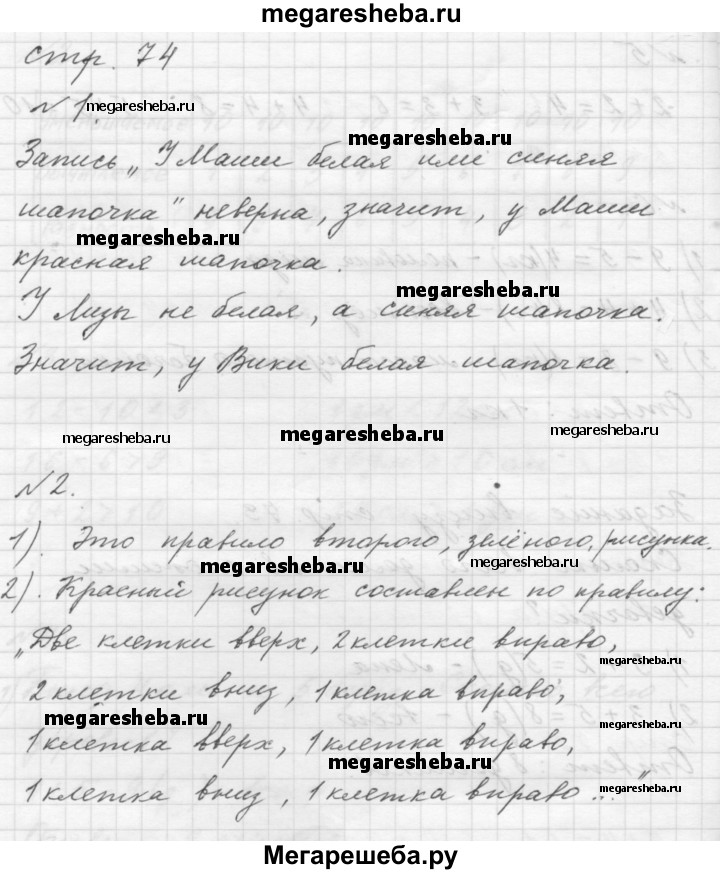 megaresheba.ru
стр. 74
№1. megaresheba.ru
megaresheba.ru
Запись „У Маши белая или синяя
шапочка" неверна, значит, у Маши
megaresheba.ru
красная шапочка.
megaresheba.ru
У Лизы не белая, а синяя шапочка.
Значит, у Вики белая шапочка.
megaresheba.ru megaresheba.ru megaresheba.ru
№2.
1). Это правило второго, зелёного, рисунка.
megaresheba.ru megaresheba.ru
2). Красный рисунок составлен по правилу:
„Две клетки вверх, 2 клетки вправо,
megaresheba.ru
2 клетки вниз, 1 клетка вправо,
megaresheba.ru megaresheba.ru
1 клетка вверх, 1 клетка вправо,
megaresheba.ru
1 клетка вниз, 1 клетка вправо..."
megaresheba.ru
Мегарешеба.ру